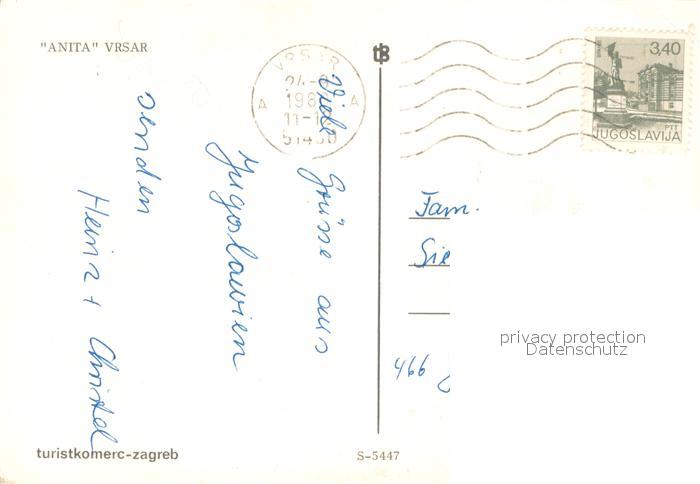 "ANITA" VRSAR
VRSAR
A A
11-12
51450
3,40
PTT
JUGOSLAVIJA
Viele Grüsse aus
Jugoslawien
senden
Heinz + Christel
Fam.
Sie
466
privacy protection
Datenschutz
turistkomerc-zagreb
S-5447